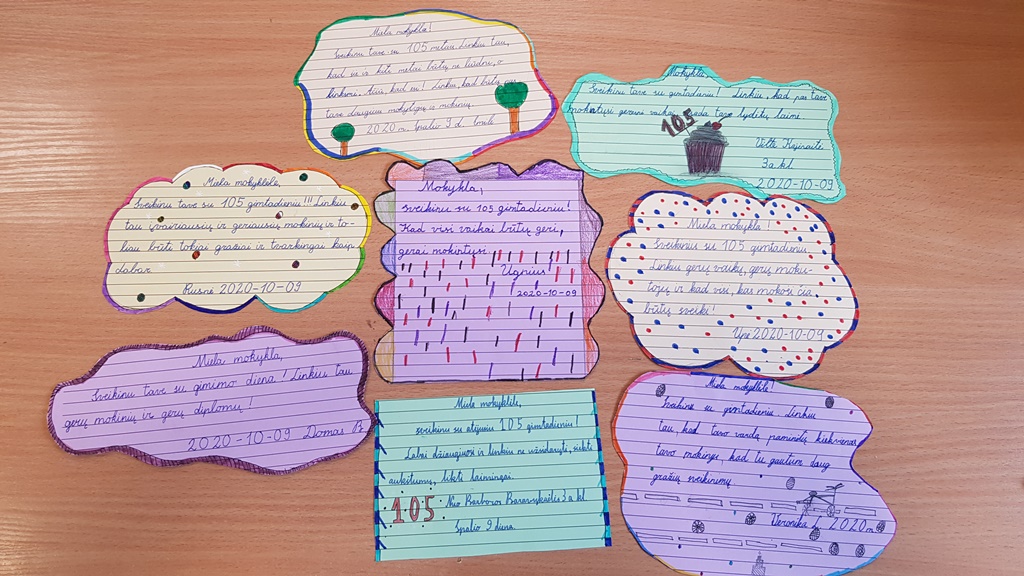 Miela mokykla!
Sveikinu tave su 105 metais. Linkiu tau,
kad ir kiti metai būtų ne liūdni, o
linksmi. Linkiu, kad būtų
tavo daugiau mokytojų ir mokinių.
2020 m. Spalio 9 d.
Mokykla,
Sveikinu tave su gimtadieniu! Linkiu, kad pas tave
mokytųsi geresni vaikai
105
3a kl.
2020-10-09
Miela mokyklėle,
Sveikinu tave su 105 gimtadieniu!!! Linkiu
tau įvairiausių ir geriausių mokinių ir to-
liau būti tokiai gražiai ir tvarkingai kaip
dabar.
Rusnė 2020-10-09
Mokykla,
sveikinu su 105 gimtadieniu!
Kad visi vaikai būtų geri,
gerai mokintųsi.
Ugnius
2020-10-09
Miela mokykla!
Sveikinu su 105 gimtadieniu.
Linkiu gerų vaikų, gerų moky-
tojų ir kad visi, kas mokosi čia
būtų sveiki!
Upė 2020-10-09
Miela mokykla,
Sveikinu tave su gimimo diena! Linkiu tau
gerų mokinių ir gerų diplomų!
2020-10-09 Domas B
Miela mokyklėle,
sveikinu su atėjusiu 105 gimtadieniu!
Labai džiaugiuosi ir linkiu ne užsidaryti, siekti
aukštumų, likti laimingai.
105 Nuo Barboros 3a kl
Spalio 9 diena.
Miela mokyklėle!
Sveikinu su gimtadieniu. Linkiu
tau, kad tavo vardą paminėtų kiekvienas
tavo mokinys, kad tu gautum daug
gražių sveikinimų.
Veronika 2020 m.